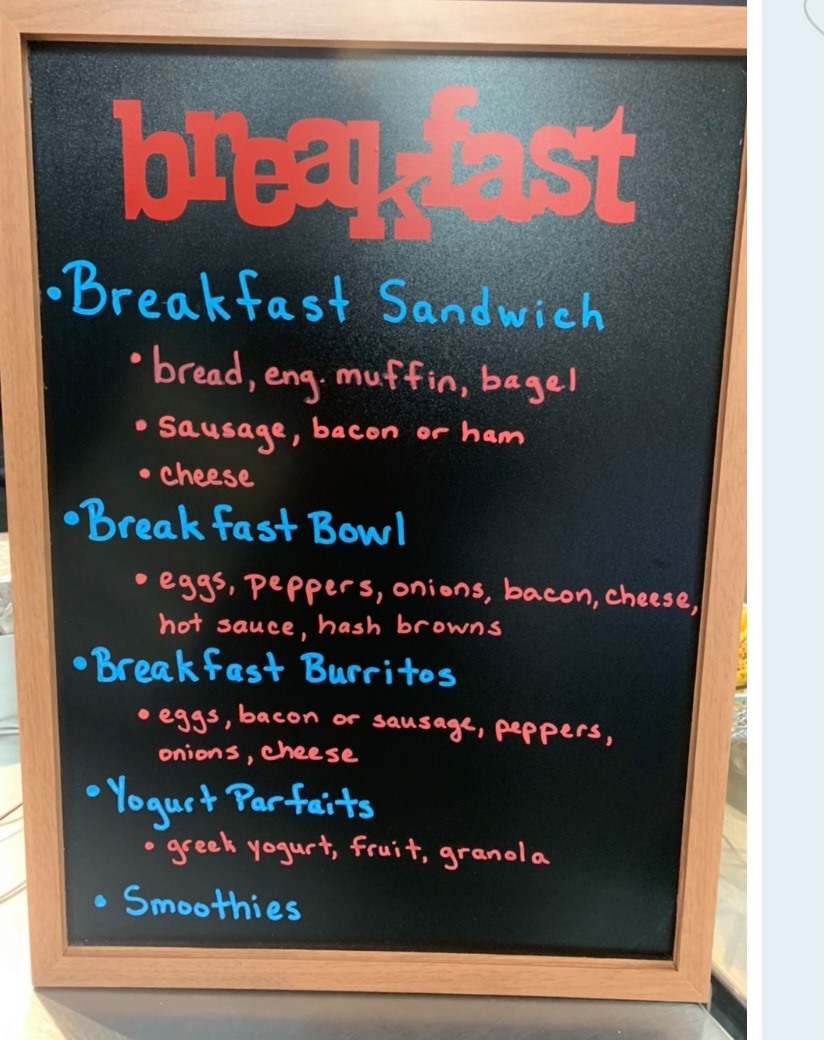 breakfast
• Breakfast Sandwich
• bread, eng. muffin, bagel
• sausage, bacon or ham
• cheese
• Breakfast Bowl
• eggs, peppers, onions, bacon, cheese,
hot sauce, hash browns
• Breakfast Burritos
• eggs, bacon or sausage, peppers,
onions, cheese
• Yogurt Parfaits
• greek yogurt, fruit, granola
• Smoothies